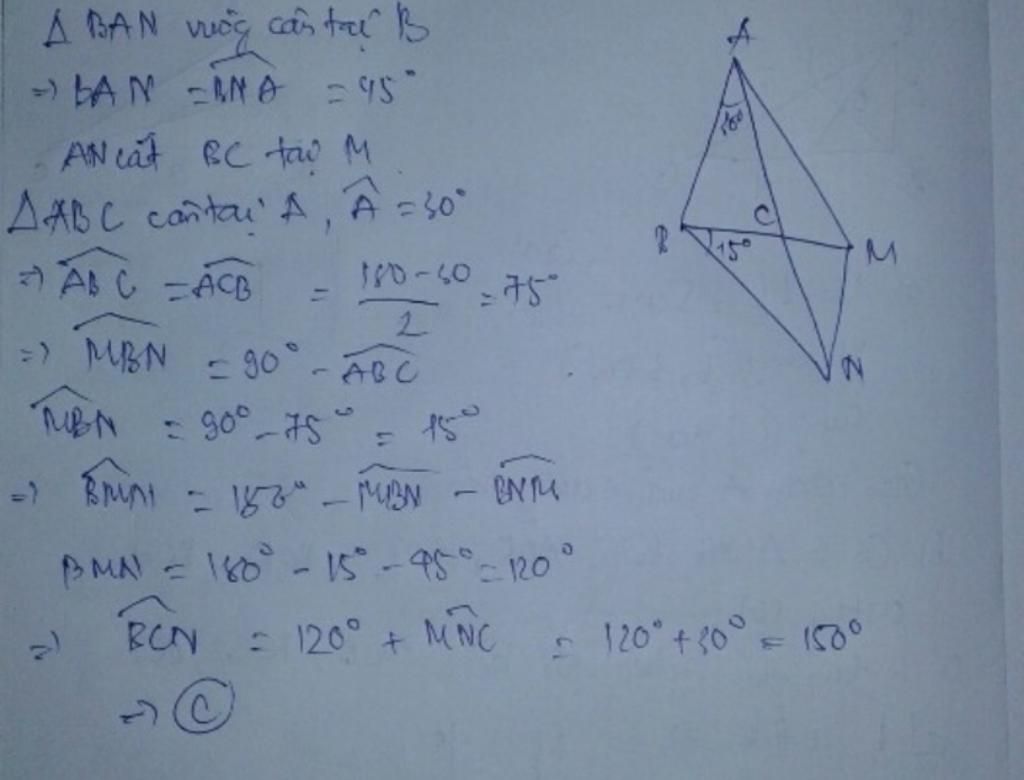 Δ BAN vuông cân tại B
=> BAN = BNA = 45°
AN cắt BC tại M
ΔABC cân tại A, Â = 30°
=> ABC = ACB = (180-30)/2 = 75°
=> MBN = 90° - ABC
MBN = 90° - 75° = 15°
=> BMN = 180° - MBN - BNM
BMN = 180° - 15° - 45° = 120°
=> BCN = 120° + MNC = 120° + 30° = 150°
=> C
A
30°
B
15°
C
M
N